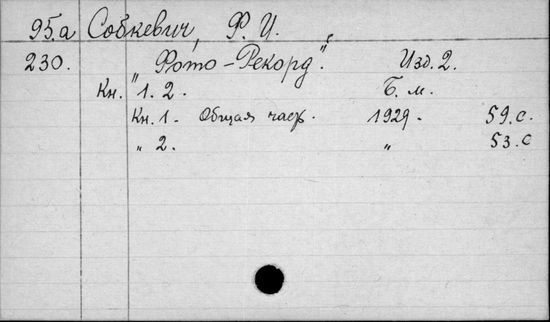 95.а Собкевич, Ф. И.,
230. "Фото-Рекорд". Изд. 2.
Кн. 1. 2. Б. м.
Кн. 1. Общая часть. 1929. 59. с.
" 2. " 53. с